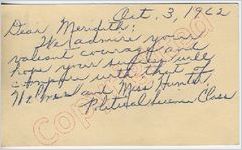 Oct, 3, 1962
Dear Meredith:
We admire your
valient courage and
hope your success will
with that of
and Miss Hunter,
Political Science Class